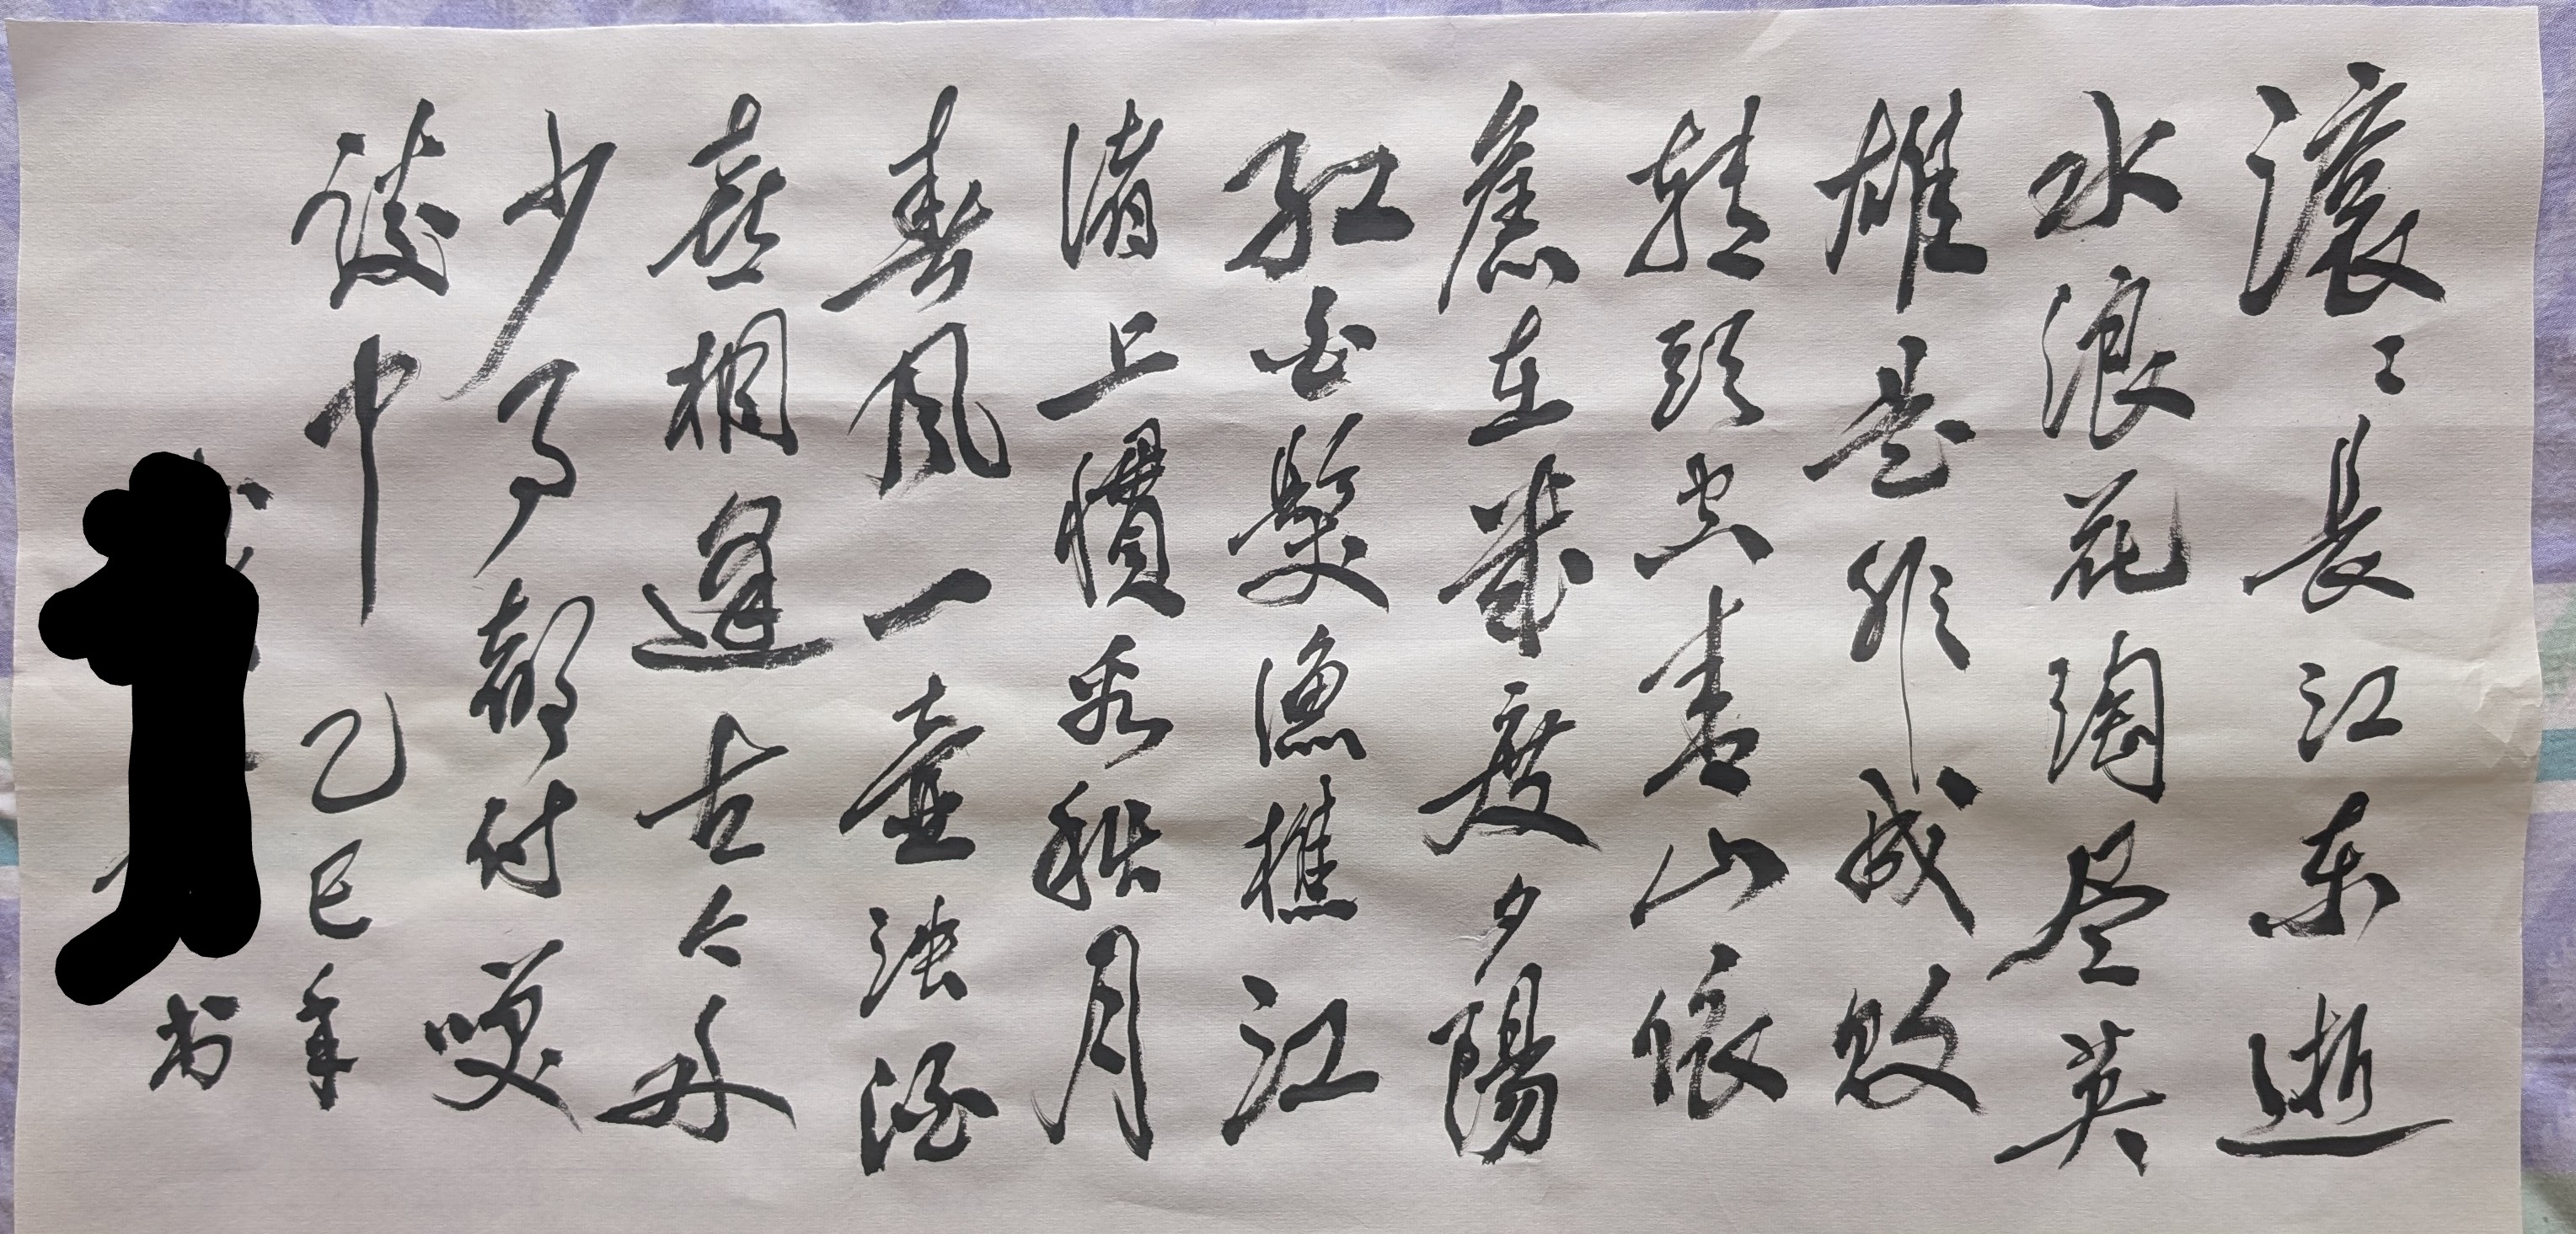 滚〻長江东逝
水浪花淘尽英
雄是非成败
转頭空青山依
舊在幾度夕陽
红白髮漁樵江
渚上慣看秋月
春风一壶浊酒
喜相逢古今多
少事都付笑
談中 乙巳年
书